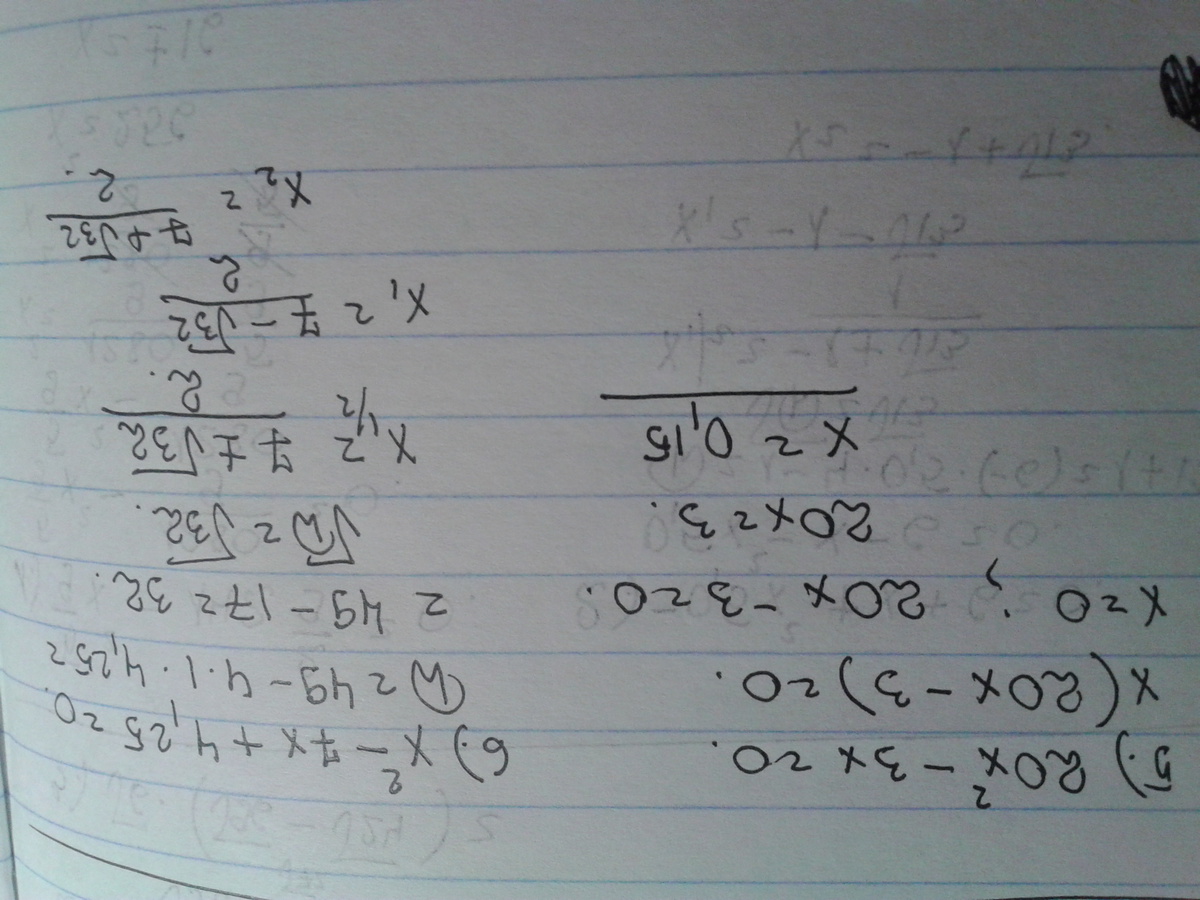 5.) 20x² - 3x = 0.
x(20x - 3) = 0.
x = 0 ; 20x - 3 = 0.
20x = 3.
x = 0,15
6.) x² - 7x + 4,25 = 0.
D = 49 - 4·1·4,25 =
= 49 - 17 = 32.
√D = √32.
x₁/₂ = (7 ± √32)/2.
x₁ = (7 - √32)/2
x₂ = (7 + √32)/2.